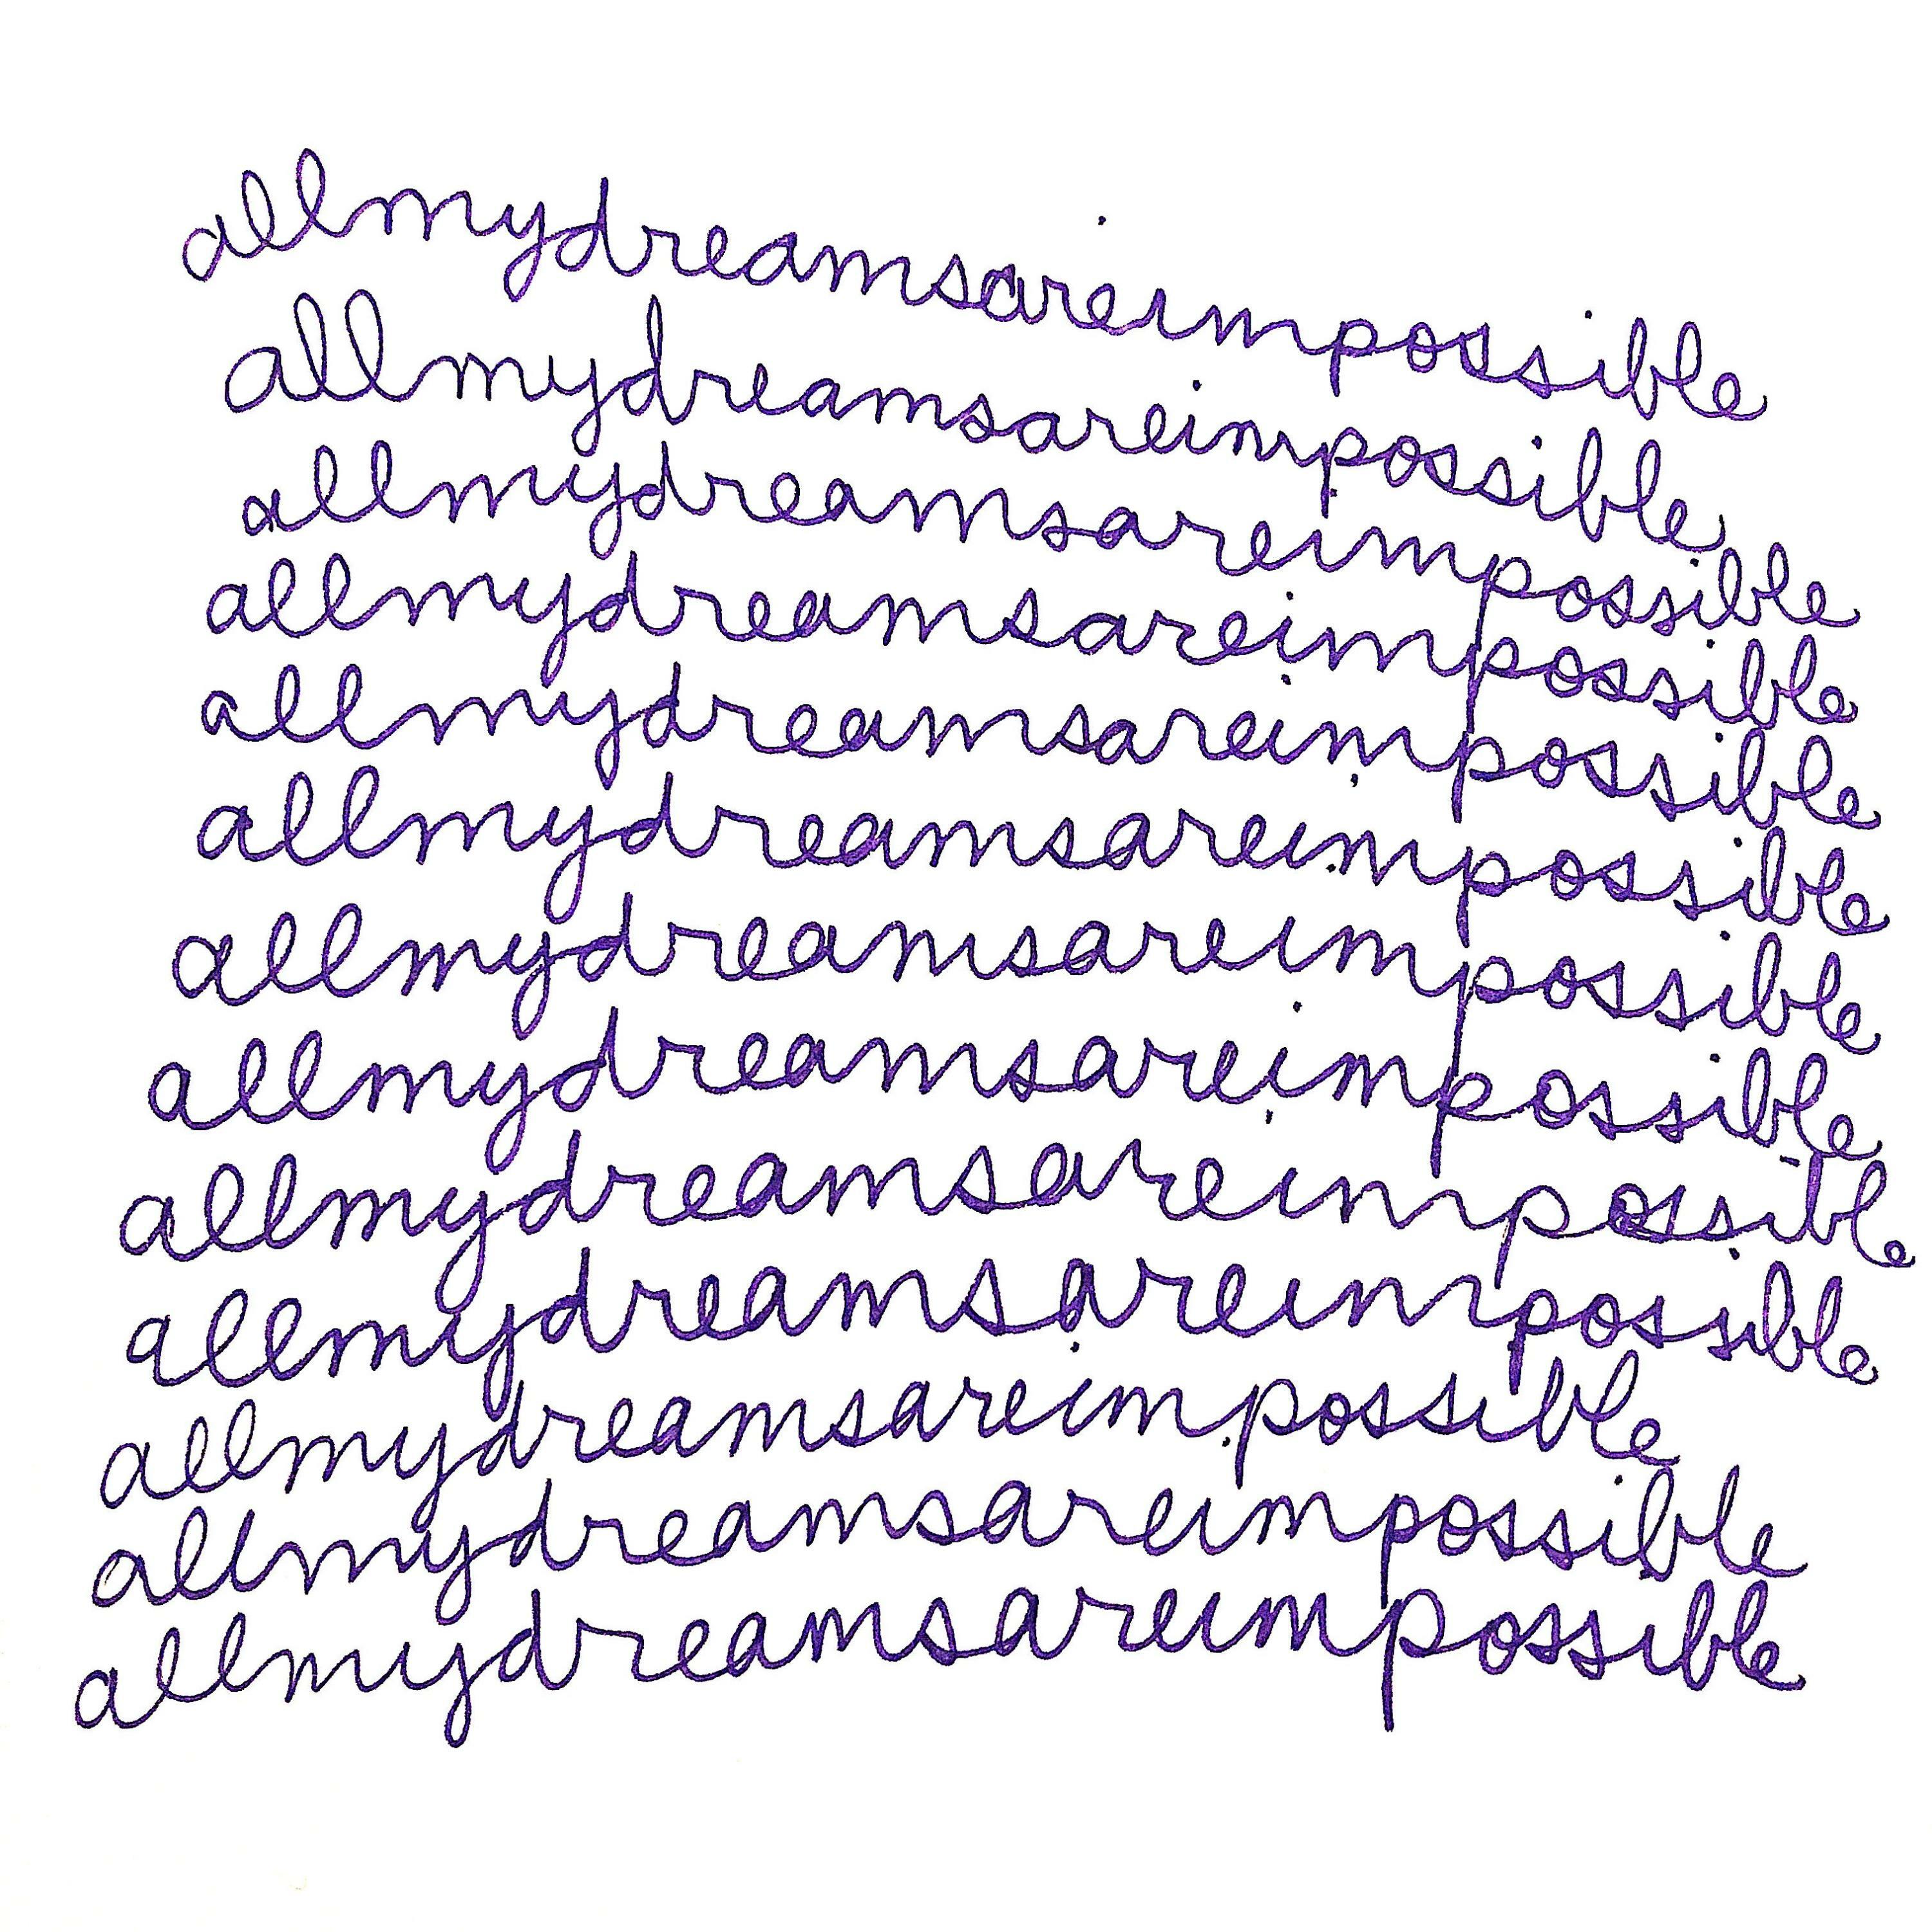 allmydreamsareimpossible
allmydreamsareimpossible
allmydreamsareimpossible
allmydreamsareimpossible
allmydreamsareimpossible
allmydreamsareimpossible
allmydreamsareimpossible
allmydreamsareimpossible
allmydreamsareimpossible
allmydreamsareimpossible
allmydreamsareimpossible
allmydreamsareimpossible
allmydreamsareimpossible